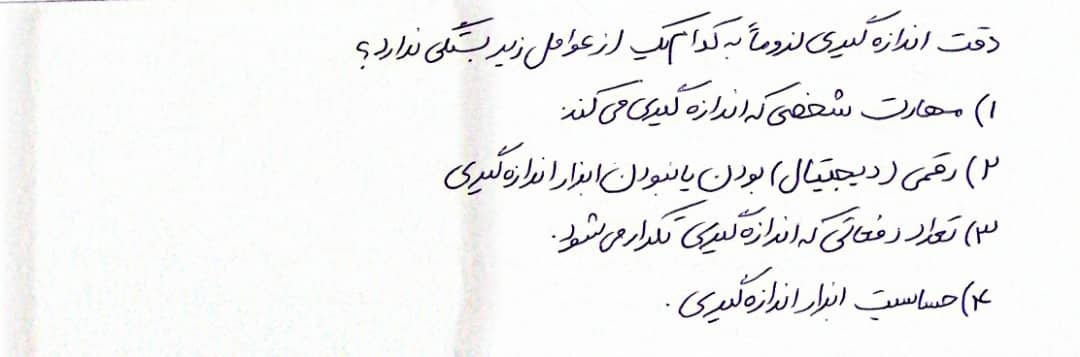 دقت اندازه گیری لزوماً به کدام یک از عوامل زیر بستگی ندارد؟
۱) مهارت شخصی که اندازه گیری می کند.
۲) رقمی (دیجیتال) بودن یا نبودن ابزار اندازه گیری
۳) تعداد دفعاتی که اندازه گیری تکرار می شود.
۴) حساسیت ابزار اندازه گیری.